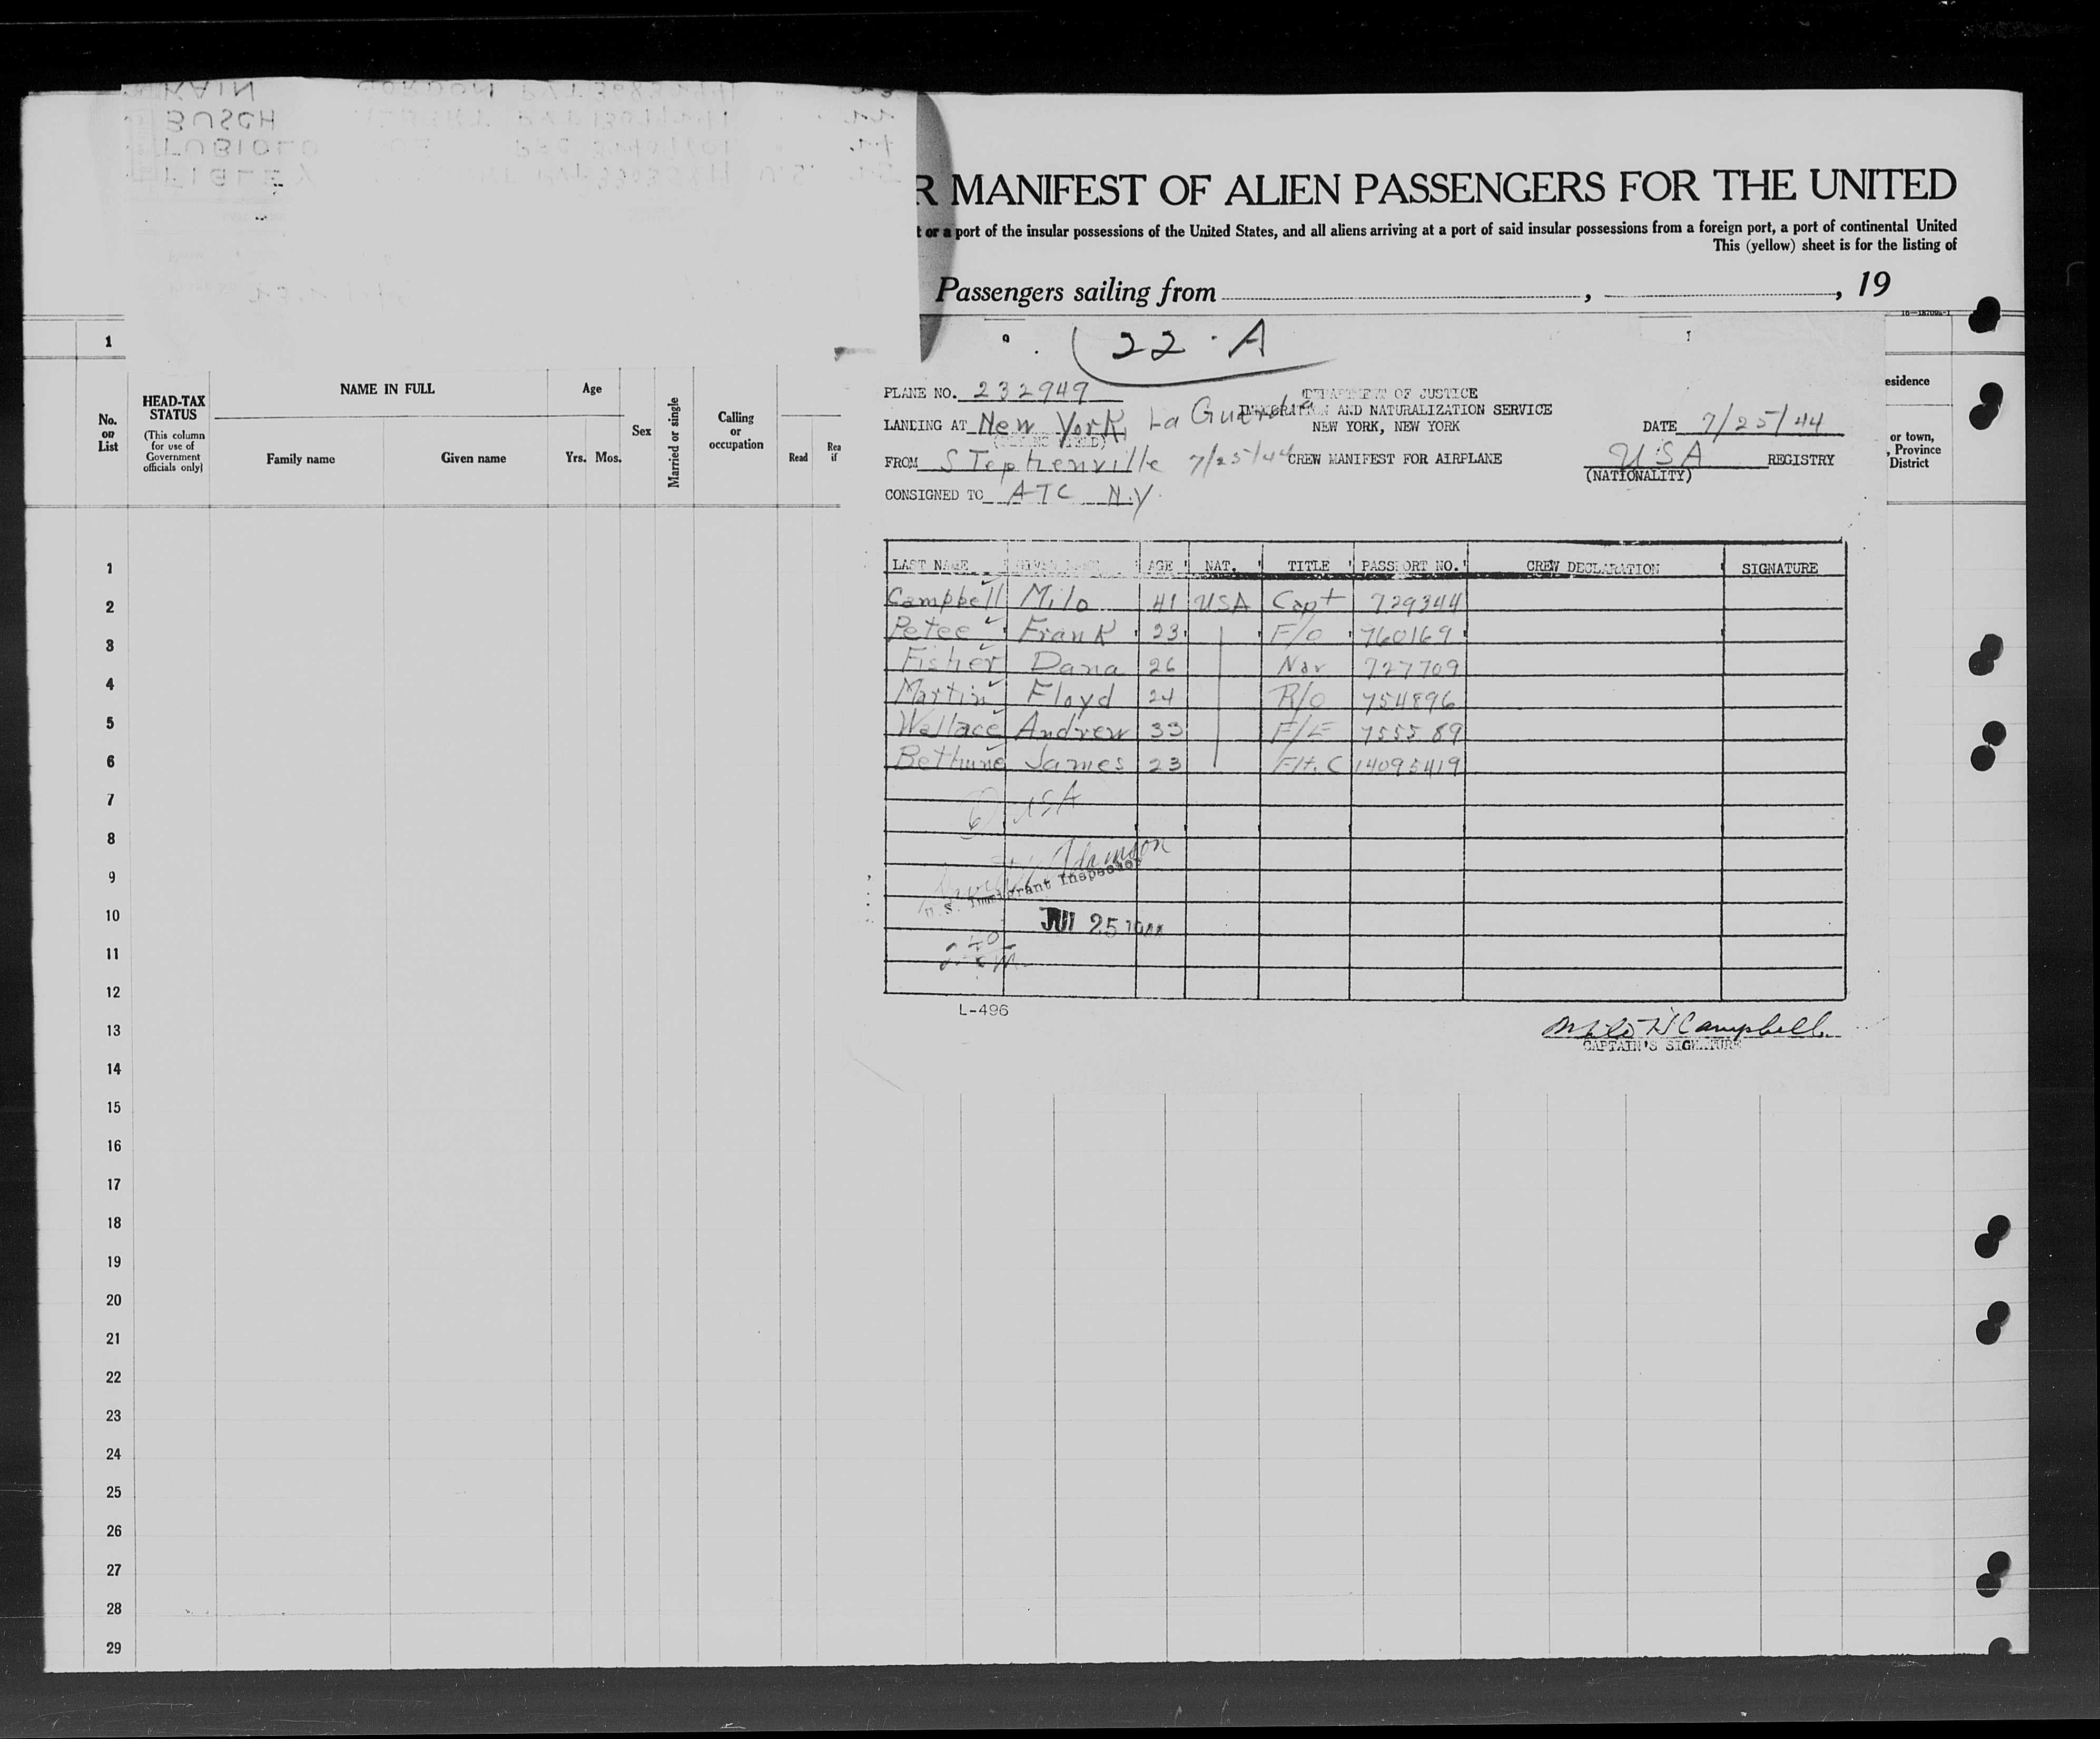 KAIN GORDON
BUSCH
R MANIFEST OF ALIEN PASSENGERS FOR THE UNITED
t or a port of the insular possessions of the United States, and all aliens arriving at a port of said insular possessions from a foreign port, a port of continental United
This (yellow) sheet is for the listing of
Passengers sailing from , , 19
22 - A
1
PLANE NO. 232949
DEPARTMENT OF JUSTICE
IMMIGRATION AND NATURALIZATION SERVICE
NEW YORK, NEW YORK
LANDING AT New York, La Guardia
DATE 7/25/44
FROM STephenville 7/25/44
CREW MANIFEST FOR AIRPLANE
USA REGISTRY
(NATIONALITY)
CONSIGNED TO ATC N.Y.
esidence
or town,
, Province
District
No. on List
HEAD-TAX STATUS
(This column for use of Government officials only)
NAME IN FULL
Family name Given name
Age
Yrs. Mos.
Sex
Married or single
Calling or occupation
Read
Rea
if
LAST NAME GIVEN NAME AGE NAT. TITLE PASSPORT NO. CREW DECLARATION SIGNATURE
Campbell Milo 41 USA Capt 729344
Petee Frank 23 F/O 760169
Fisher Dana 26 Nav 727709
Martin Floyd 24 R/O 754896
Wallace Andrew 33 F/E 755589
Bethune James 23 Flt. C 14095419
6 USA
Adamson
U.S. Immigrant Inspector
JUL 25 1944
L-496
Milo H Campbell
CAPTAIN'S SIGNATURE
1
2
3
4
5
6
7
8
9
10
11
12
13
14
15
16
17
18
19
20
21
22
23
24
25
26
27
28
29